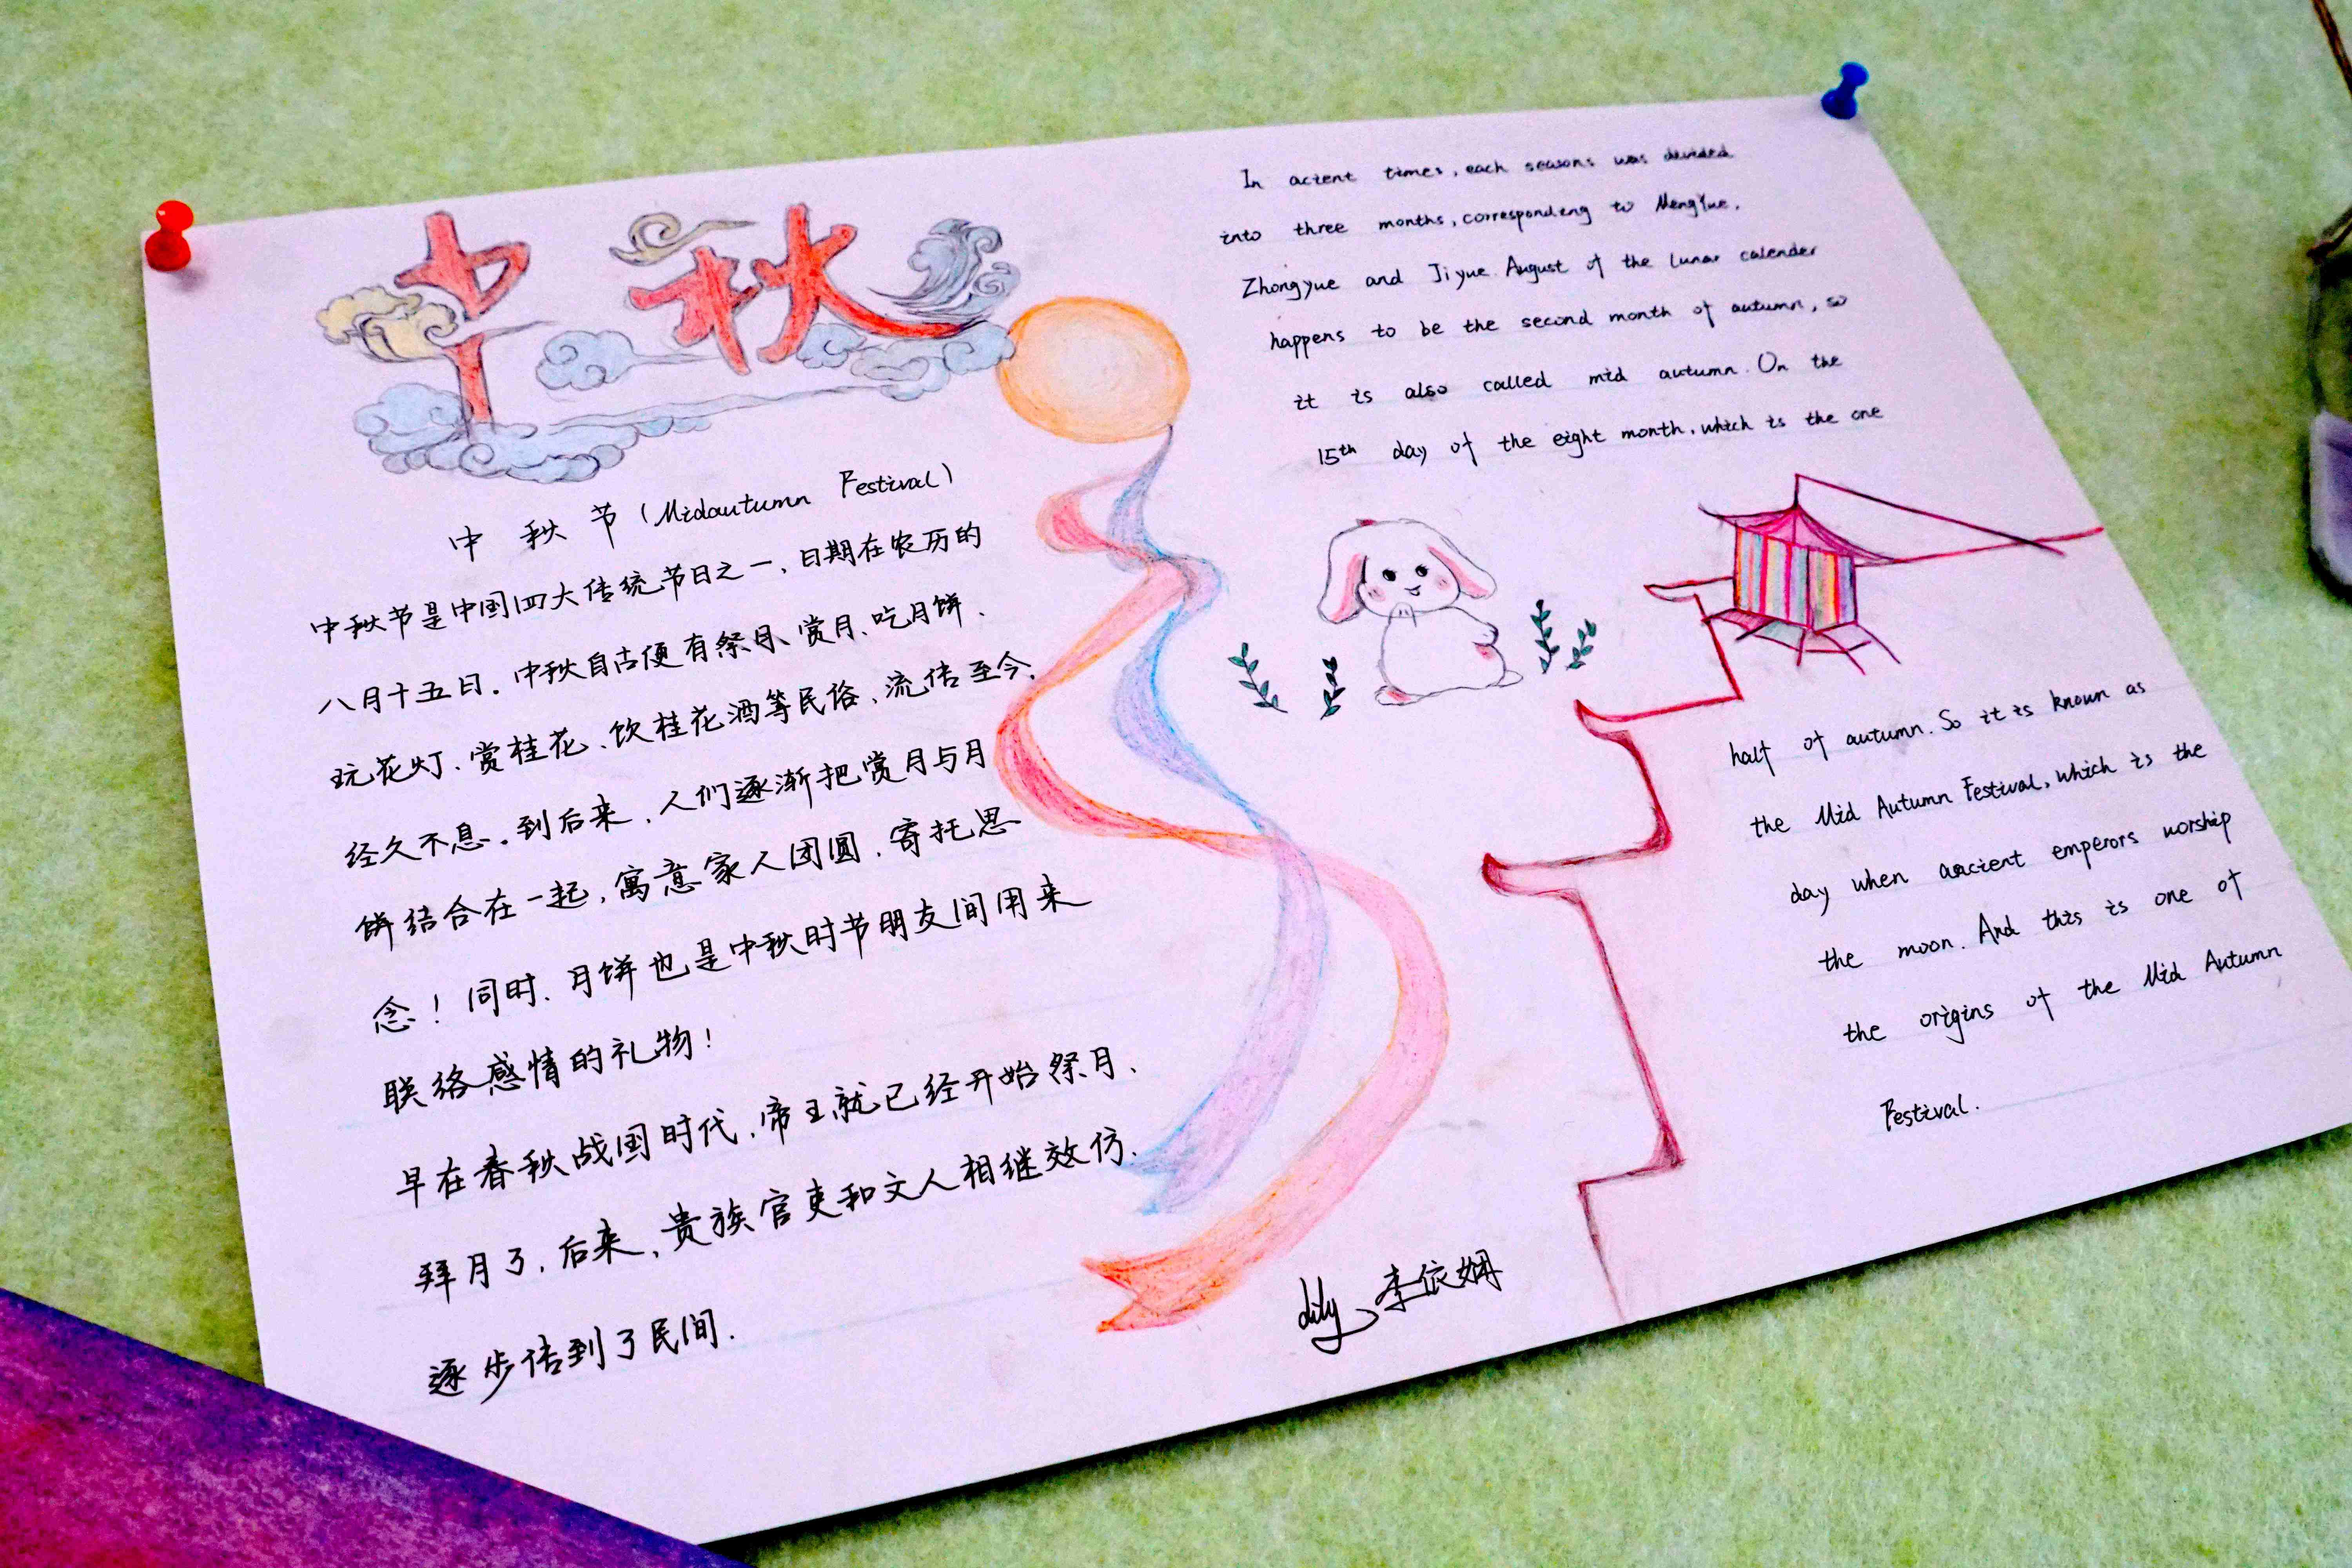 中秋
中秋节(Midautumn Festival)
中秋节是中国四大传统节日之一,日期在农历的
八月十五日。中秋自古便有祭月、赏月、吃月饼、
玩花灯、赏桂花、饮桂花酒等民俗、流传至今,
经久不息。到后来,人们逐渐把赏月与月
饼结合在一起,寓意家人团圆,寄托思
念!同时,月饼也是中秋时节朋友间用来
联络感情的礼物!
早在春秋战国时代,帝王就已经开始祭月、
拜月了,后来,贵族官吏和文人相继效仿,
逐步传到了民间.
In acient times, each seasons was devided
into three months, corresponding to MengYue,
Zhongyue and Jiyue. August of the lunar calender
happens to be the second month of autumn, so
it is also called mid autumn. On the
15th day of the eight month, which is the one
half of autumn. So it is known as
the Mid Autumn Festival, which is the
day when ancient emperors worship
the moon. And this is one of
the origins of the Mid Autumn
Festival.
李依娴